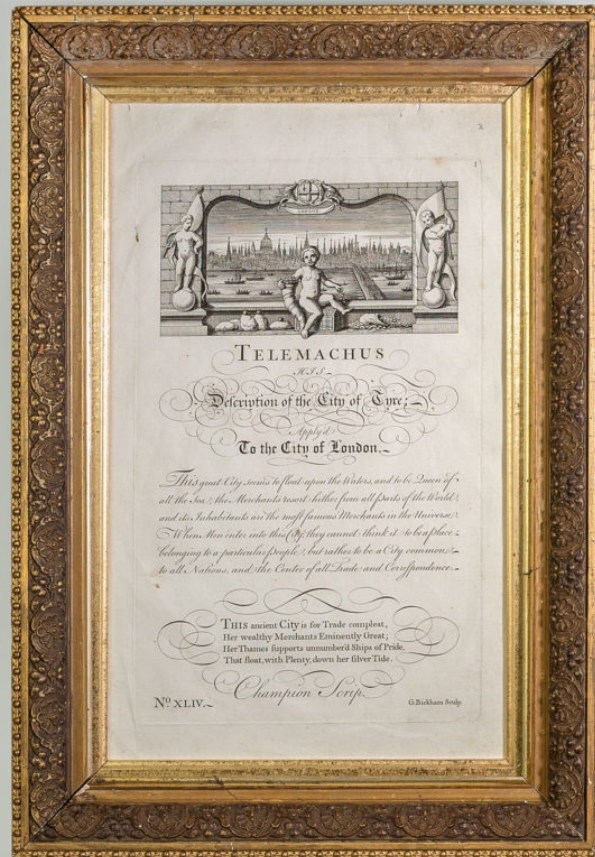 LONDON
TELEMACHUS
HIS
Description of the City of Tyre;
Apply'd
To the City of London.
This great City seems to float upon the Waters, and to be Queen of
all the Sea; the Merchants resort hither from all Parts of the World;
and its Inhabitants are the most famous Merchants in the Universe.
When Men enter into this City, they cannot think it to be a place
belonging to a particular People, but rather to be a City common
to all Nations, and the Center of all Trade and Correspondence.
THIS ancient City is for Trade compleat,
Her wealthy Merchants Eminently Great;
Her Thames supports unnumber'd Ships of Pride,
That float, with Plenty, down her silver Tide.
Champion Scrip.
No. XLIV.
G. Bickham Sculp